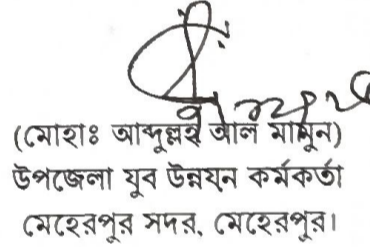 (মোহাঃ আব্দুল্লাহ আল মামুন)
উপজেলা যুব উন্নয়ন কর্মকর্তা
মেহেরপুর সদর, মেহেরপুর।